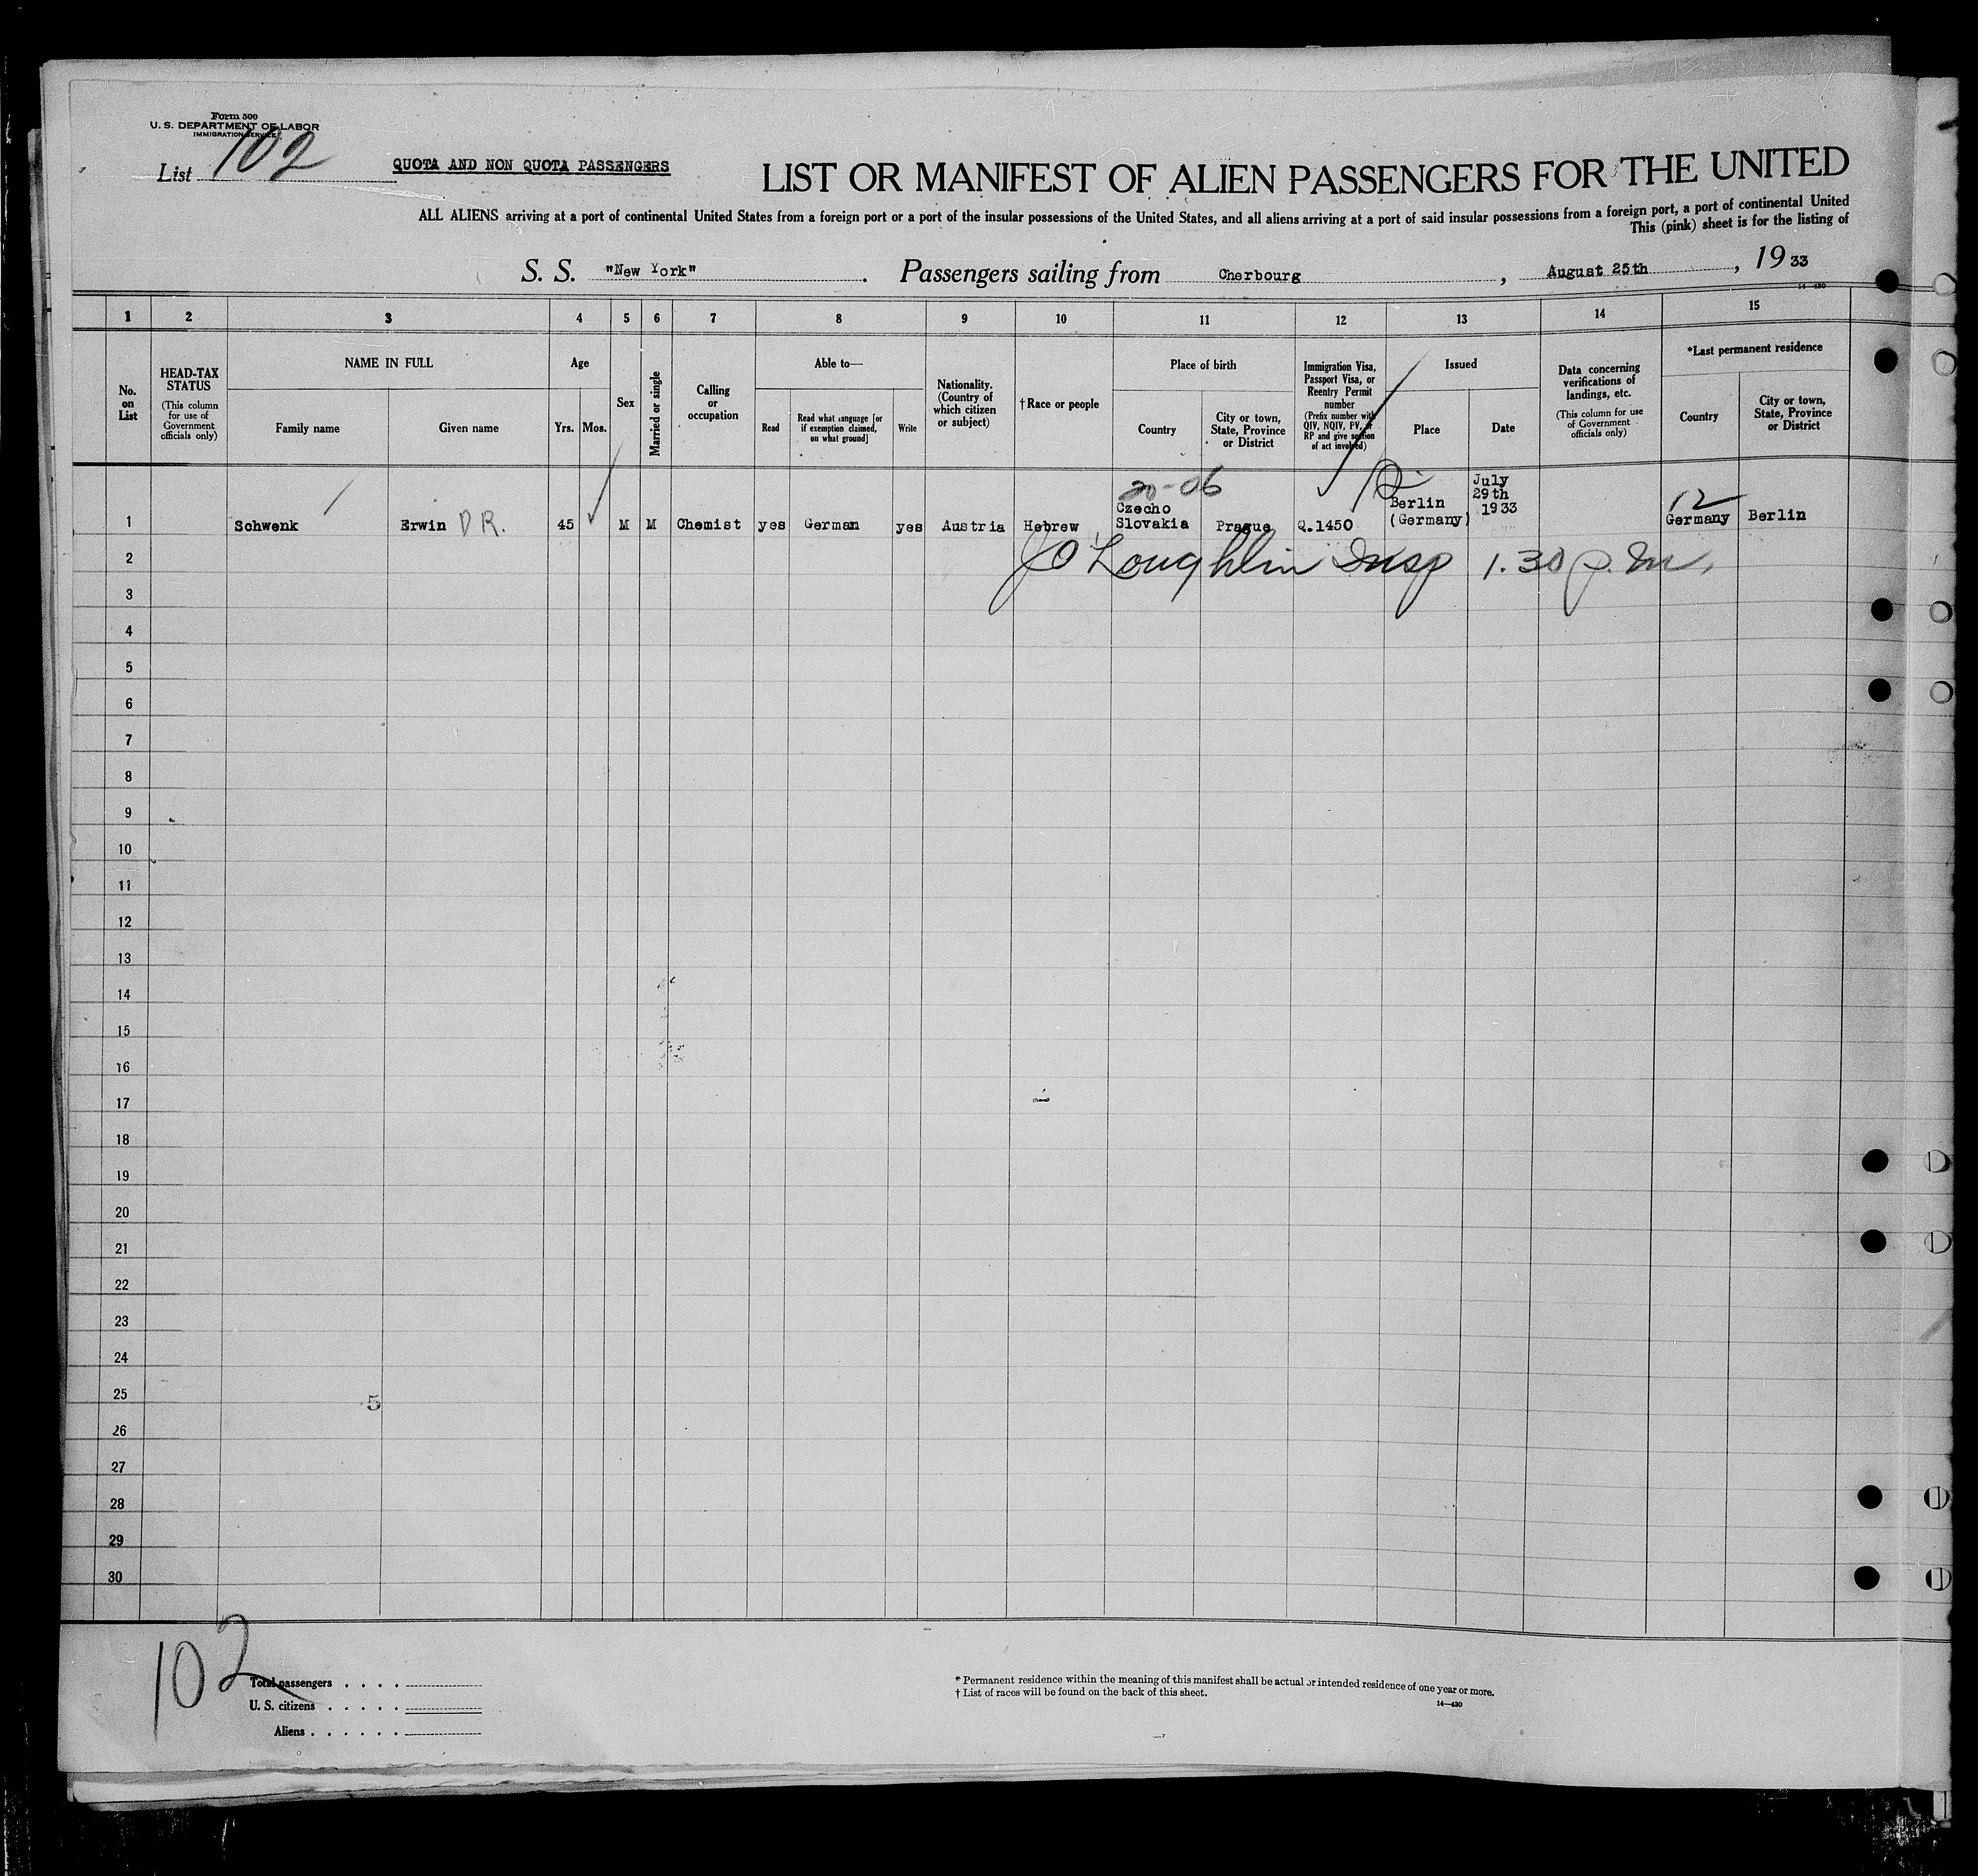 Form 500
U. S. DEPARTMENT OF LABOR
IMMIGRATION SERVICE
List 102
QUOTA AND NON QUOTA PASSENGERS
LIST OR MANIFEST OF ALIEN PASSENGERS FOR THE UNITED
ALL ALIENS arriving at a port of continental United States from a foreign port or a port of the insular possessions of the United States, and all aliens arriving at a port of said insular possessions from a foreign port, a port of continental United
This (pink) sheet is for the listing of
S. S. "New York". Passengers sailing from Cherbourg, August 25th, 19 33
14—430
1 2 3 4 5 6 7 8 9 10 11 12 13 14 15
No. on List
HEAD-TAX STATUS
(This column for use of Government officials only)
NAME IN FULL
Family name
Given name
Age
Yrs. Mos.
Sex
Married or single
Calling or occupation
Able to—
Read
Read what language [or if exemption claimed, on what ground]
Write
Nationality. (Country of which citizen or subject)
† Race or people
Place of birth
Country
City or town, State, Province or District
Immigration Visa, Passport Visa, or Reentry Permit number
(Prefix number with QIV, NQIV, PV, or RP and give section of act involved)
Issued
Place
Date
Data concerning verifications of landings, etc.
(This column for use of Government officials only)
*Last permanent residence
Country
City or town, State, Province or District
20-06
12
1 Schwenk Erwin DR. 45 M M Chemist yes German yes Austria Hebrew Czecho Slovakia Prague Q.1450 Berlin (Germany) July 29th 1933 Germany Berlin
2 J O'Loughlin Insp 1.30 p.m.
3
4
5
6
7
8
9
10
11
12
13
14
15
16
17
18
19
20
21
22
23
24
25
5
26
27
28
29
30
102
Total passengers . . . .
U. S. citizens . . . . .
Aliens . . . . . .
* Permanent residence within the meaning of this manifest shall be actual or intended residence of one year or more.
† List of races will be found on the back of this sheet.
14—430